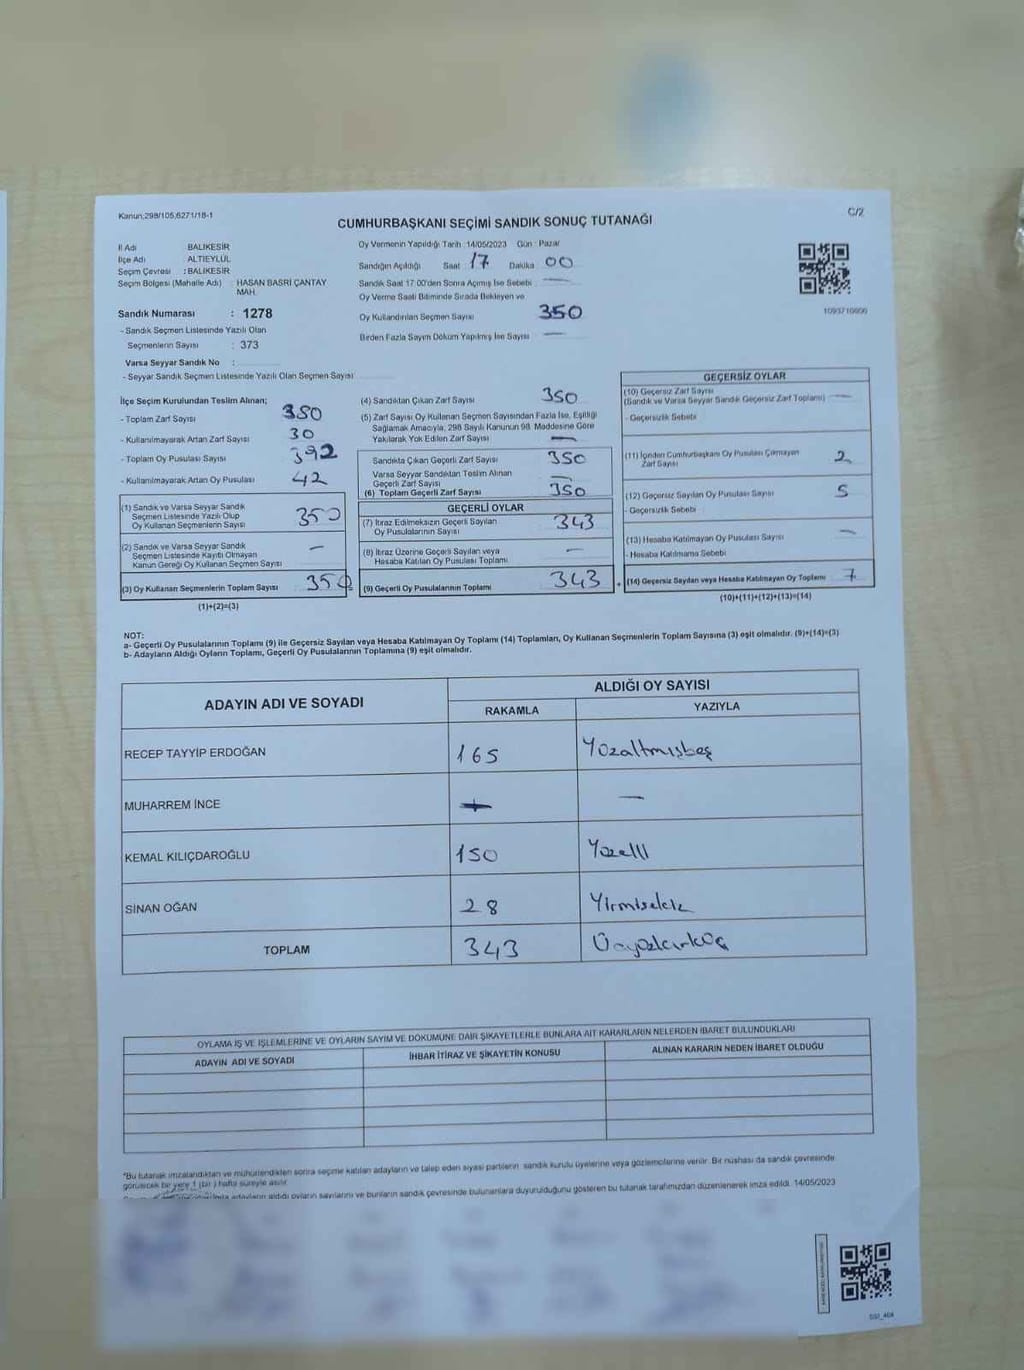 Kanun;298/105,6271/18-1
C/2
CUMHURBAŞKANI SEÇİMİ SANDIK SONUÇ TUTANAĞI
İl Adı BALIKESİR
İlçe Adı ALTIEYLÜL
Seçim Çevresi : BALIKESİR
Seçim Bölgesi (Mahalle Adı) : HASAN BASRİ ÇANTAY
MAH.
Sandık Numarası : 1278
- Sandık Seçmen Listesinde Yazılı Olan
Seçmenlerin Sayısı : 373
Varsa Seyyar Sandık No :
- Seyyar Sandık Seçmen Listesinde Yazılı Olan Seçmen Sayısı
Oy Vermenin Yapıldığı Tarih :14/05/2023 Gün : Pazar
Sandığın Açıldığı Saat 17 Dakika 00
Sandık Saat 17.00'den Sonra Açmış İse Sebebi —
Oy Verme Saati Bitiminde Sırada Bekleyen ve
Oy Kullandırılan Seçmen Sayısı 350
Birden Fazla Sayım Döküm Yapılmış İse Sayısı —
İlçe Seçim Kurulundan Teslim Alınan;
- Toplam Zarf Sayısı 380
- Kullanılmayarak Artan Zarf Sayısı 30
- Toplam Oy Pusulası Sayısı 392
- Kullanılmayarak Artan Oy Pusulası 42
(1) Sandık ve Varsa Seyyar Sandık
Seçmen Listesinde Yazılı Olup
Oy Kullanan Seçmenlerin Sayısı 350
(2) Sandık ve Varsa Seyyar Sandık
Seçmen Listesinde Kayıtlı Olmayan
Kanun Gereği Oy Kullanan Seçmen Sayısı —
(3) Oy Kullanan Seçmenlerin Toplam Sayısı 350
(1)+(2)=(3)
(4) Sandıktan Çıkan Zarf Sayısı 350
(5) Zarf Sayısı Oy Kullanan Seçmen Sayısından Fazla İse, Eşitliği
Sağlamak Amacıyla, 298 Sayılı Kanunun 98. Maddesine Göre
Yakılarak Yok Edilen Zarf Sayısı —
Sandıkta Çıkan Geçerli Zarf Sayısı 350
Varsa Seyyar Sandıktan Teslim Alınan
Geçerli Zarf Sayısı —
(6) Toplam Geçerli Zarf Sayısı 350
GEÇERLİ OYLAR
(7) İtiraz Edilmeksizin Geçerli Sayılan
Oy Pusulalarının Sayısı 343
(8) İtiraz Üzerine Geçerli Sayılan veya
Hesaba Katılan Oy Pusulası Toplamı —
= (9) Geçerli Oy Pusulalarının Toplamı 343
GEÇERSİZ OYLAR
(10) Geçersiz Zarf Sayısı
(Sandık ve Varsa Seyyar Sandık Geçersiz Zarf Toplamı) —
- Geçersizlik Sebebi
(11) İçinden Cumhurbaşkanı Oy Pusulası Çıkmayan
Zarf Sayısı 2
(12) Geçersiz Sayılan Oy Pusulası Sayısı 5
- Geçersizlik Sebebi
(13) Hesaba Katılmayan Oy Pusulası Sayısı —
- Hesaba Katılmama Sebebi
+ (14) Geçersiz Sayılan veya Hesaba Katılmayan Oy Toplamı 7
(10)+(11)+(12)+(13)=(14)
NOT:
a- Geçerli Oy Pusulalarının Toplamı (9) ile Geçersiz Sayılan veya Hesaba Katılmayan Oy Toplamı (14) Toplamları, Oy Kullanan Seçmenlerin Toplam Sayısına (3) eşit olmalıdır. (9)+(14)=(3)
b- Adayların Aldığı Oyların Toplamı, Geçerli Oy Pusulalarının Toplamına (9) eşit olmalıdır.
ADAYIN ADI VE SOYADI
ALDIĞI OY SAYISI
RAKAMLA YAZIYLA
RECEP TAYYİP ERDOĞAN 165 Yüzaltmışbeş
MUHARREM İNCE — —
KEMAL KILIÇDAROĞLU 150 Yüzelli
SİNAN OĞAN 28 Yirmisekiz
TOPLAM 343 Üçyüzkırküç
OYLAMA İŞ VE İŞLEMLERİNE VE OYLARIN SAYIM VE DÖKÜMÜNE DAİR ŞİKAYETLERLE BUNLARA AİT KARARLARIN NELERDEN İBARET BULUNDUKLARI
ADAYIN ADI VE SOYADI İHBAR İTİRAZ VE ŞİKAYETİN KONUSU ALINAN KARARIN NEDEN İBARET OLDUĞU
*Bu tutanak imzalandıktan ve mühürlendikten sonra seçime katılan adayların ve talep eden siyasi partilerin sandık kurulu üyelerine veya gözlemcilerine verilir. Bir nüshası da sandık çevresinde
görülecek bir yere 1 (bir) hafta süreyle asılır.
adayların aldığı oyların sayılarını ve bunların sandık çevresinde bulunanlara duyurulduğunu gösteren bu tutanak tarafımızdan düzenlenerek imza edildi. 14/05/2023